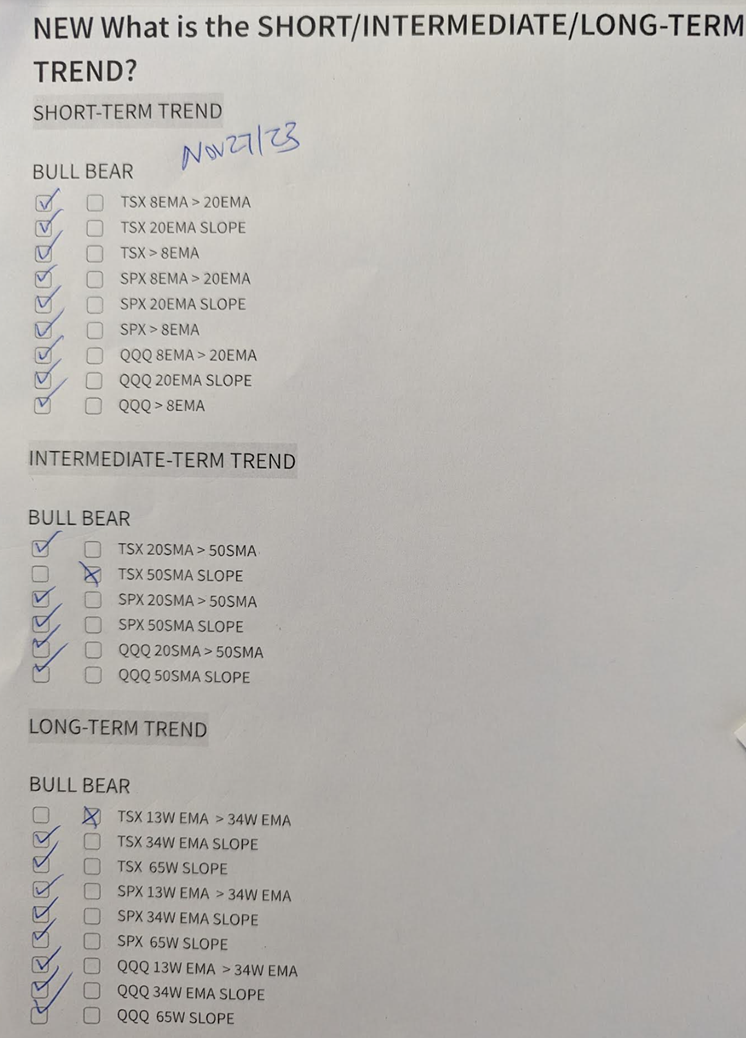 NEW What is the SHORT/INTERMEDIATE/LONG-TERM
TREND?
SHORT-TERM TREND
Nov 27/23
BULL BEAR
TSX 8EMA > 20EMA
TSX 20EMA SLOPE
TSX > 8EMA
SPX 8EMA > 20EMA
SPX 20EMA SLOPE
SPX > 8EMA
QQQ 8EMA > 20EMA
QQQ 20EMA SLOPE
QQQ > 8EMA
INTERMEDIATE-TERM TREND
BULL BEAR
TSX 20SMA > 50SMA
TSX 50SMA SLOPE
SPX 20SMA > 50SMA
SPX 50SMA SLOPE
QQQ 20SMA > 50SMA
QQQ 50SMA SLOPE
LONG-TERM TREND
BULL BEAR
TSX 13W EMA > 34W EMA
TSX 34W EMA SLOPE
TSX 65W SLOPE
SPX 13W EMA > 34W EMA
SPX 34W EMA SLOPE
SPX 65W SLOPE
QQQ 13W EMA > 34W EMA
QQQ 34W EMA SLOPE
QQQ 65W SLOPE